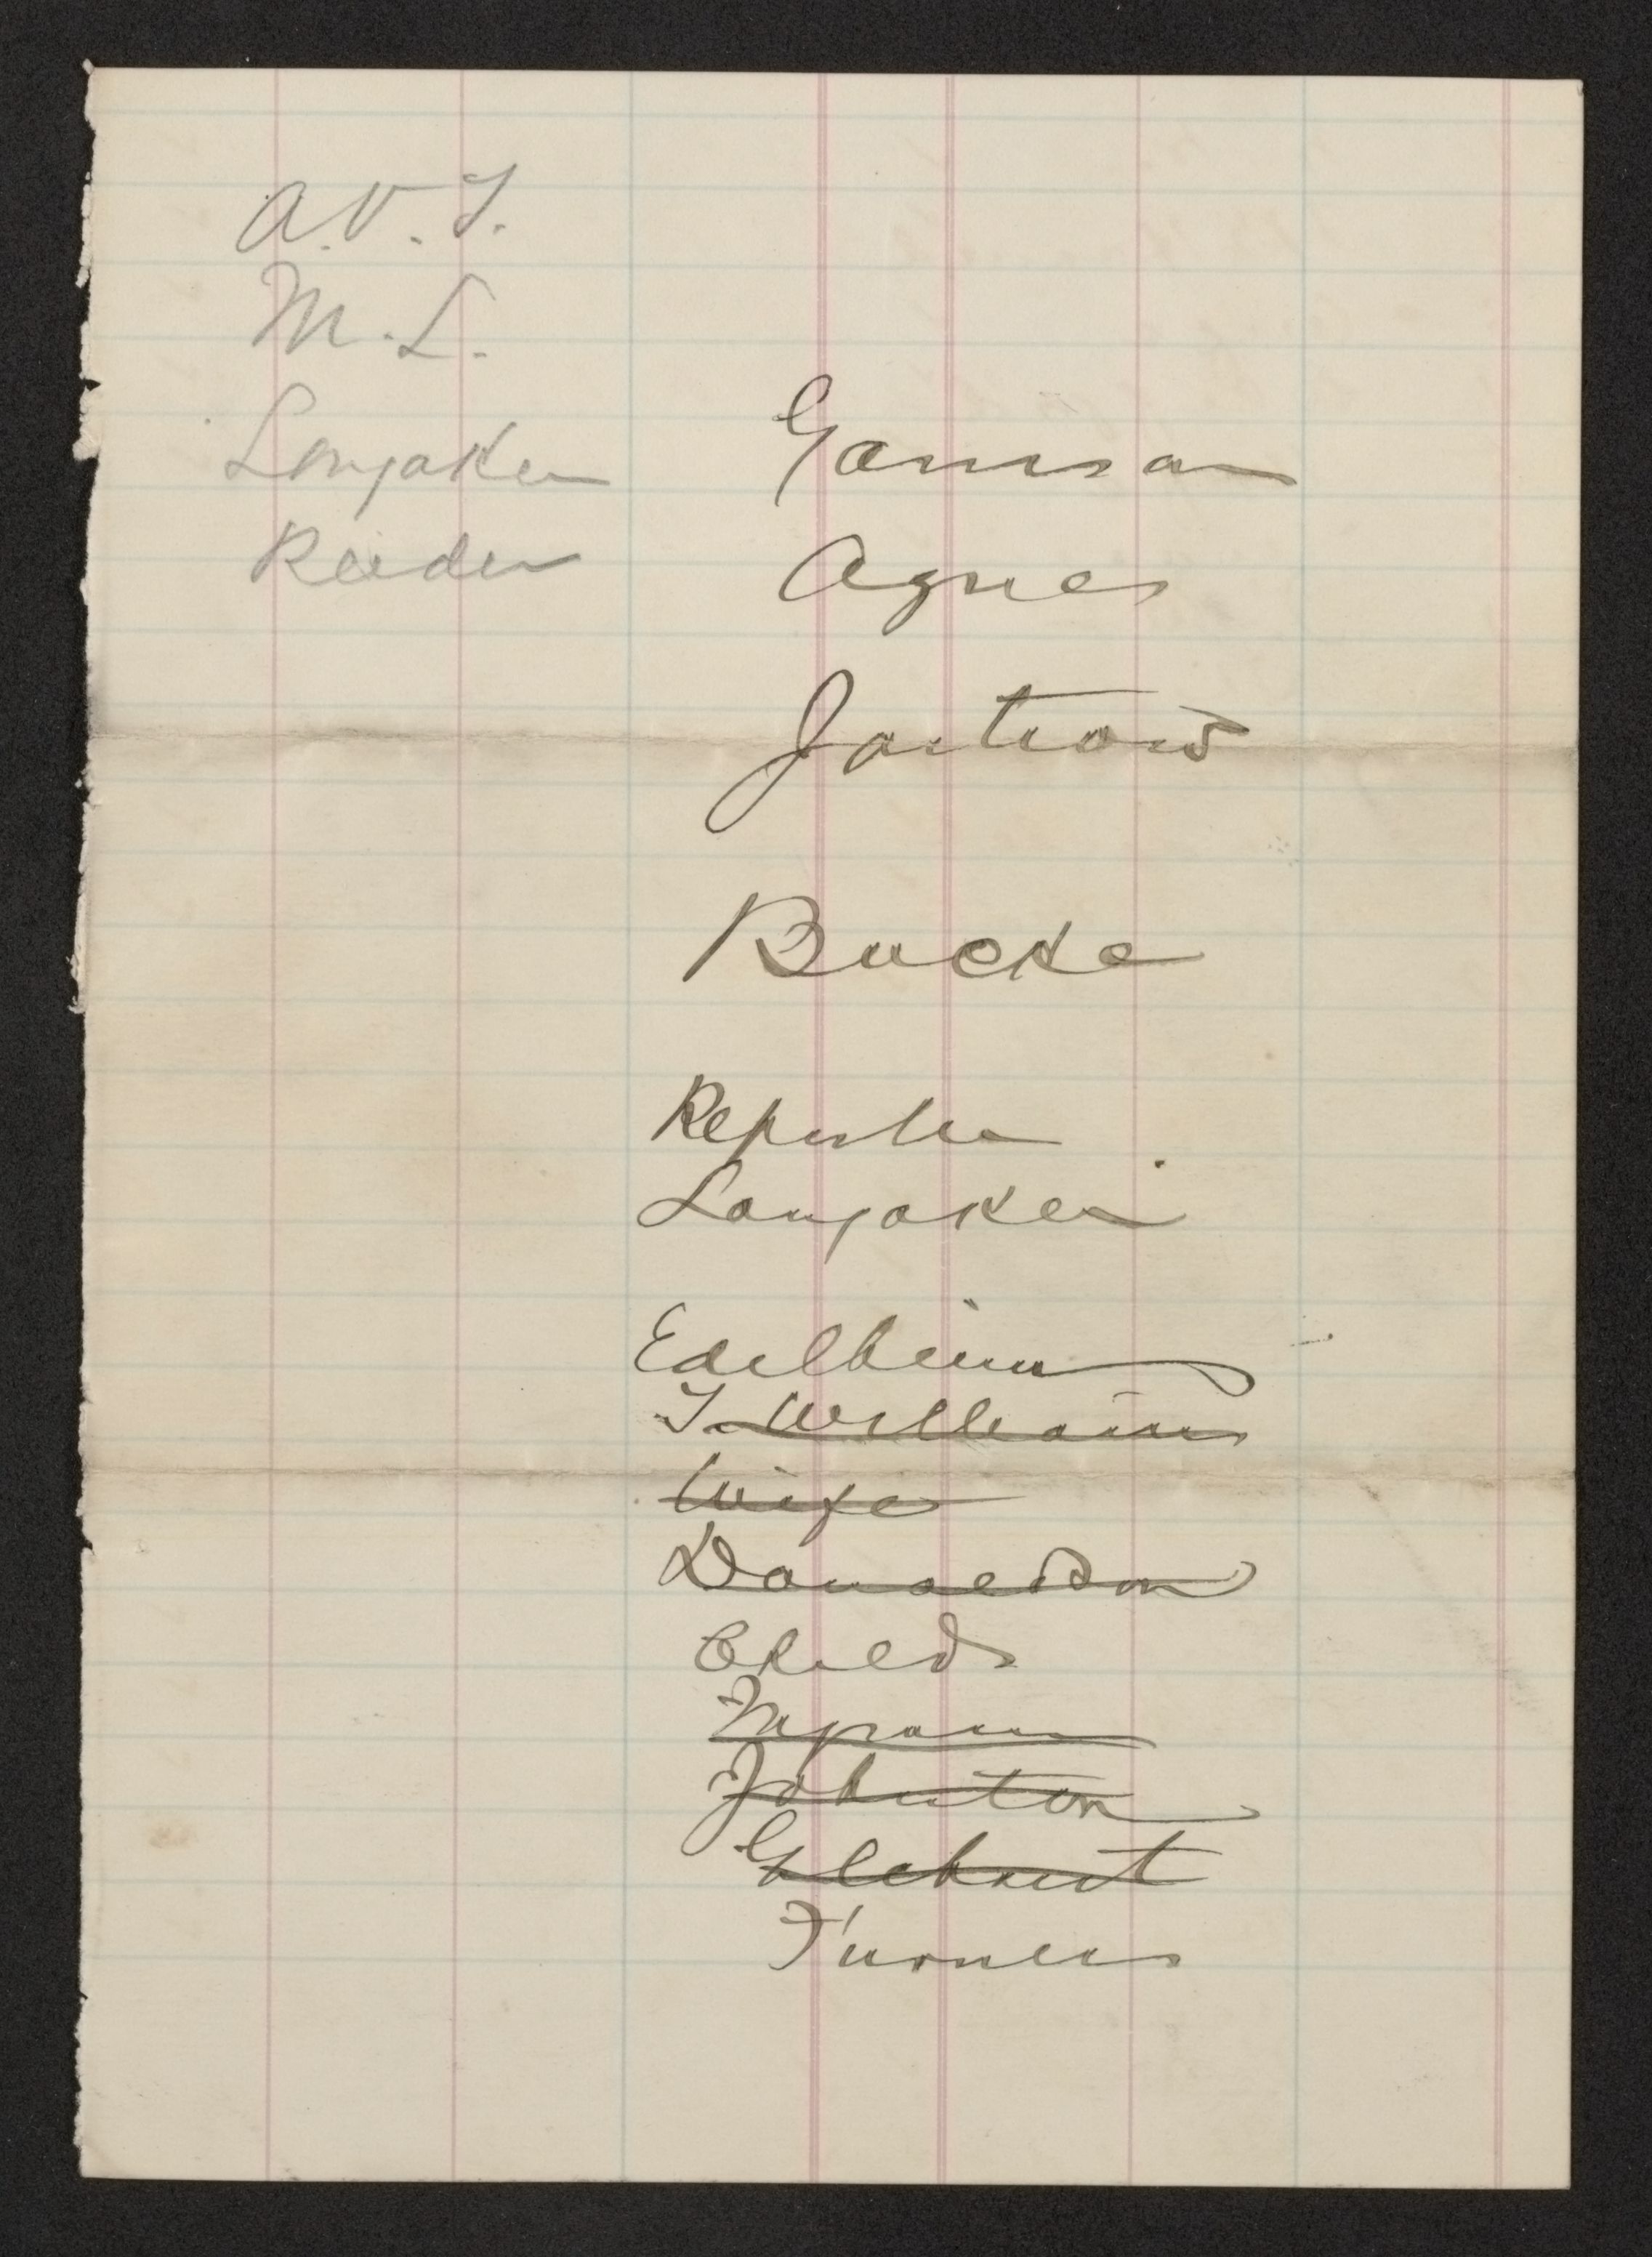 A.V.S.
M.L.
Longaker
Reeder
Garrison
Agnes
Jastrow
Bucke
Reporter
Longaker
Edelheim
T. Williams
Wife
Donaldson
Childs
Ingram
Johnston
Gilchrist
Turners